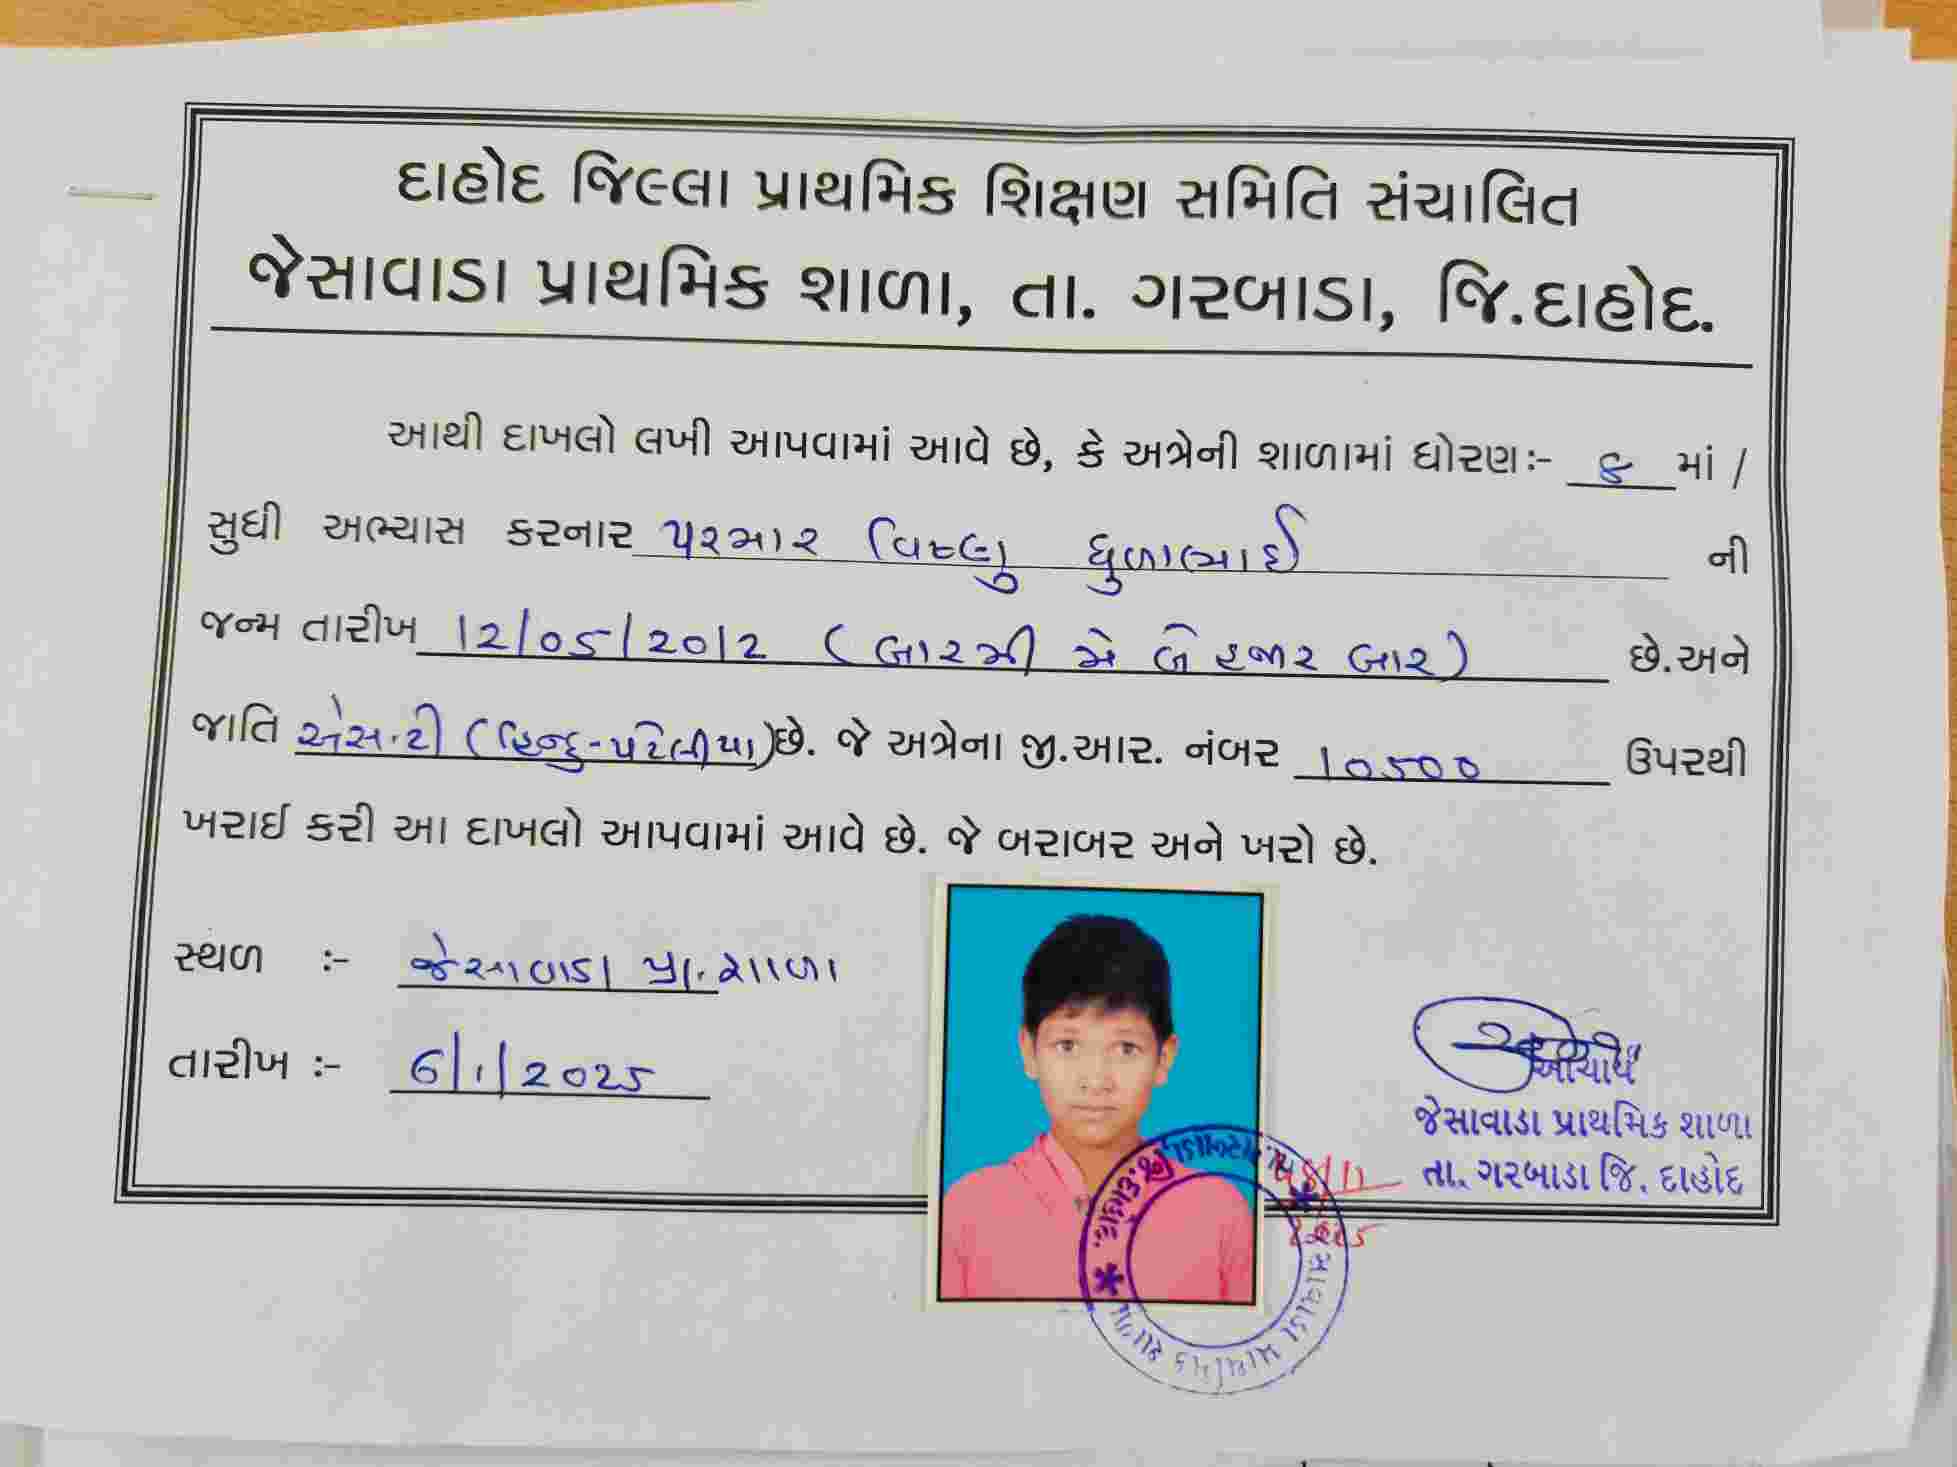 દાહોદ જિલ્લા પ્રાથમિક શિક્ષણ સમિતિ સંચાલિત
જેસાવાડા પ્રાથમિક શાળા, તા. ગરબાડા, જિ.દાહોદ.
આથી દાખલો લખી આપવામાં આવે છે, કે અત્રેની શાળામાં ધોરણઃ- માં /
સુધી અભ્યાસ કરનાર પરમાર વિષ્ણુ ધુળાભાઈ ની
જન્મ તારીખ 12/05/2012 (બારમી મે બે હજાર બાર) છે.અને
જાતિ એસ.ટી (હિન્દુ-પટેલીયા) છે. જે અત્રેના જી.આર. નંબર 10500 ઉપરથી
ખરાઈ કરી આ દાખલો આપવામાં આવે છે. જે બરાબર અને ખરો છે.
સ્થળ :- જેસાવાડા પ્રા.શાળા
તારીખ :- 6/1/2025
આચાર્ય
જેસાવાડા પ્રાથમિક શાળા
તા. ગરબાડા જિ. દાહોદ
જેસાવાડા પ્રાથમિક શાળા * તા. ગરબાડા, જી. દાહોદ. *